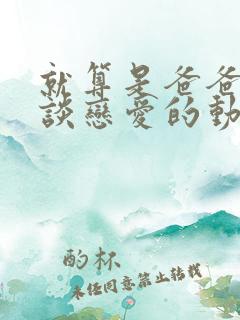 就算是爸爸
談戀愛的動
酌杯
未经同意禁止转载